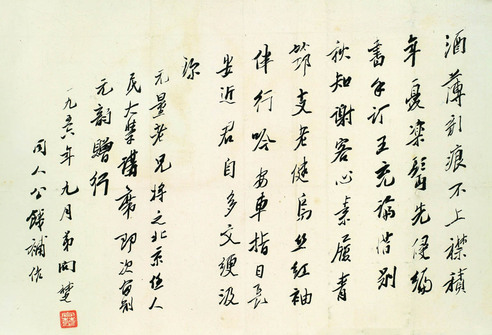 酒薄痕不上襟積
年憂樂鬢先侵編
書手订王充論惜别
秋知謝客心素履青
筇支老健烏丝紅袖
伴行吟安車指日長
安近君自多文綆汲
深
元量老兄将之北京任人
民大學講席即次留别
元韵贈行
一九五六年九月弟向楚
同人公餞補作